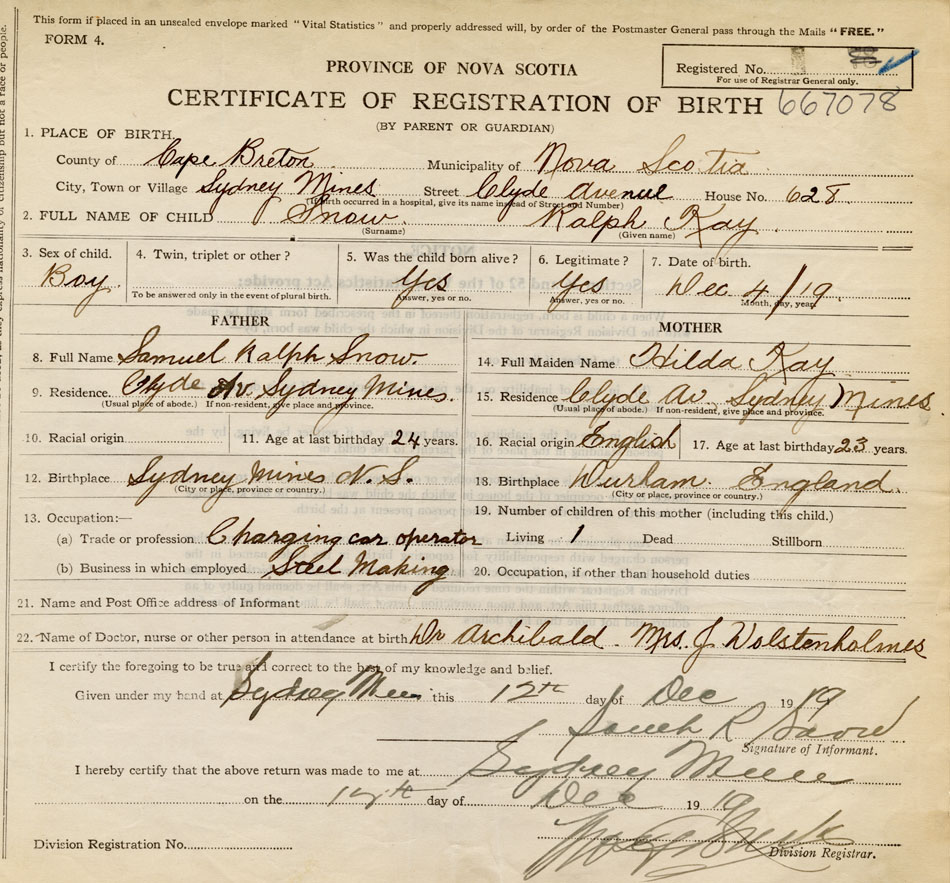 This form if placed in an unsealed envelope marked "Vital Statistics" and properly addressed will, by order of the Postmaster General pass through the Mails "FREE."
FORM 4.
Registered No.
For use of Registrar General only.
PROVINCE OF NOVA SCOTIA
CERTIFICATE OF REGISTRATION OF BIRTH 667078
(BY PARENT OR GUARDIAN)
1. PLACE OF BIRTH.
County of Cape Breton Municipality of Nova Scotia
City, Town or Village Sydney Mines Street Clyde Avenue House No. 628
(If birth occurred in a hospital, give its name instead of Street and Number)
2. FULL NAME OF CHILD Snow. Ralph Kay
(Surname) (Given name)
3. Sex of child. 4. Twin, triplet or other? 5. Was the child born alive? 6. Legitimate? 7. Date of birth.
Boy. Yes Yes Dec 4/19
To be answered only in the event of plural birth. Answer, yes or no. Answer, yes or no. Month, day, year.
FATHER MOTHER
8. Full Name Samuel Ralph Snow. 14. Full Maiden Name Hilda Kay
9. Residence. Clyde Av. Sydney Mines. 15. Residence Clyde Av Sydney Mines
(Usual place of abode.) If non-resident, give place and province. (Usual place of abode.) If non-resident, give place and province.
10. Racial origin 11. Age at last birthday 24 years. 16. Racial origin English 17. Age at last birthday 23 years.
12. Birthplace Sydney Mines N.S. 18. Birthplace Durham. England.
(City or place, province or country.) (City or place, province or country.)
13. Occupation:— 19. Number of children of this mother (including this child.)
(a) Trade or profession Charging car operator Living 1 Dead Stillborn
(b) Business in which employed Steel Making 20. Occupation, if other than household duties
21. Name and Post Office address of Informant
22. Name of Doctor, nurse or other person in attendance at birth Dr Archibald. Mrs. J Wolstenholmes
I certify the foregoing to be true and correct to the best of my knowledge and belief.
Given under my hand at Sydney Mines this 12th day of Dec 1919
Signature of Informant.
I hereby certify that the above return was made to me at Sydney Mines
on the day of Dec 1919
Division Registration No. Division Registrar.